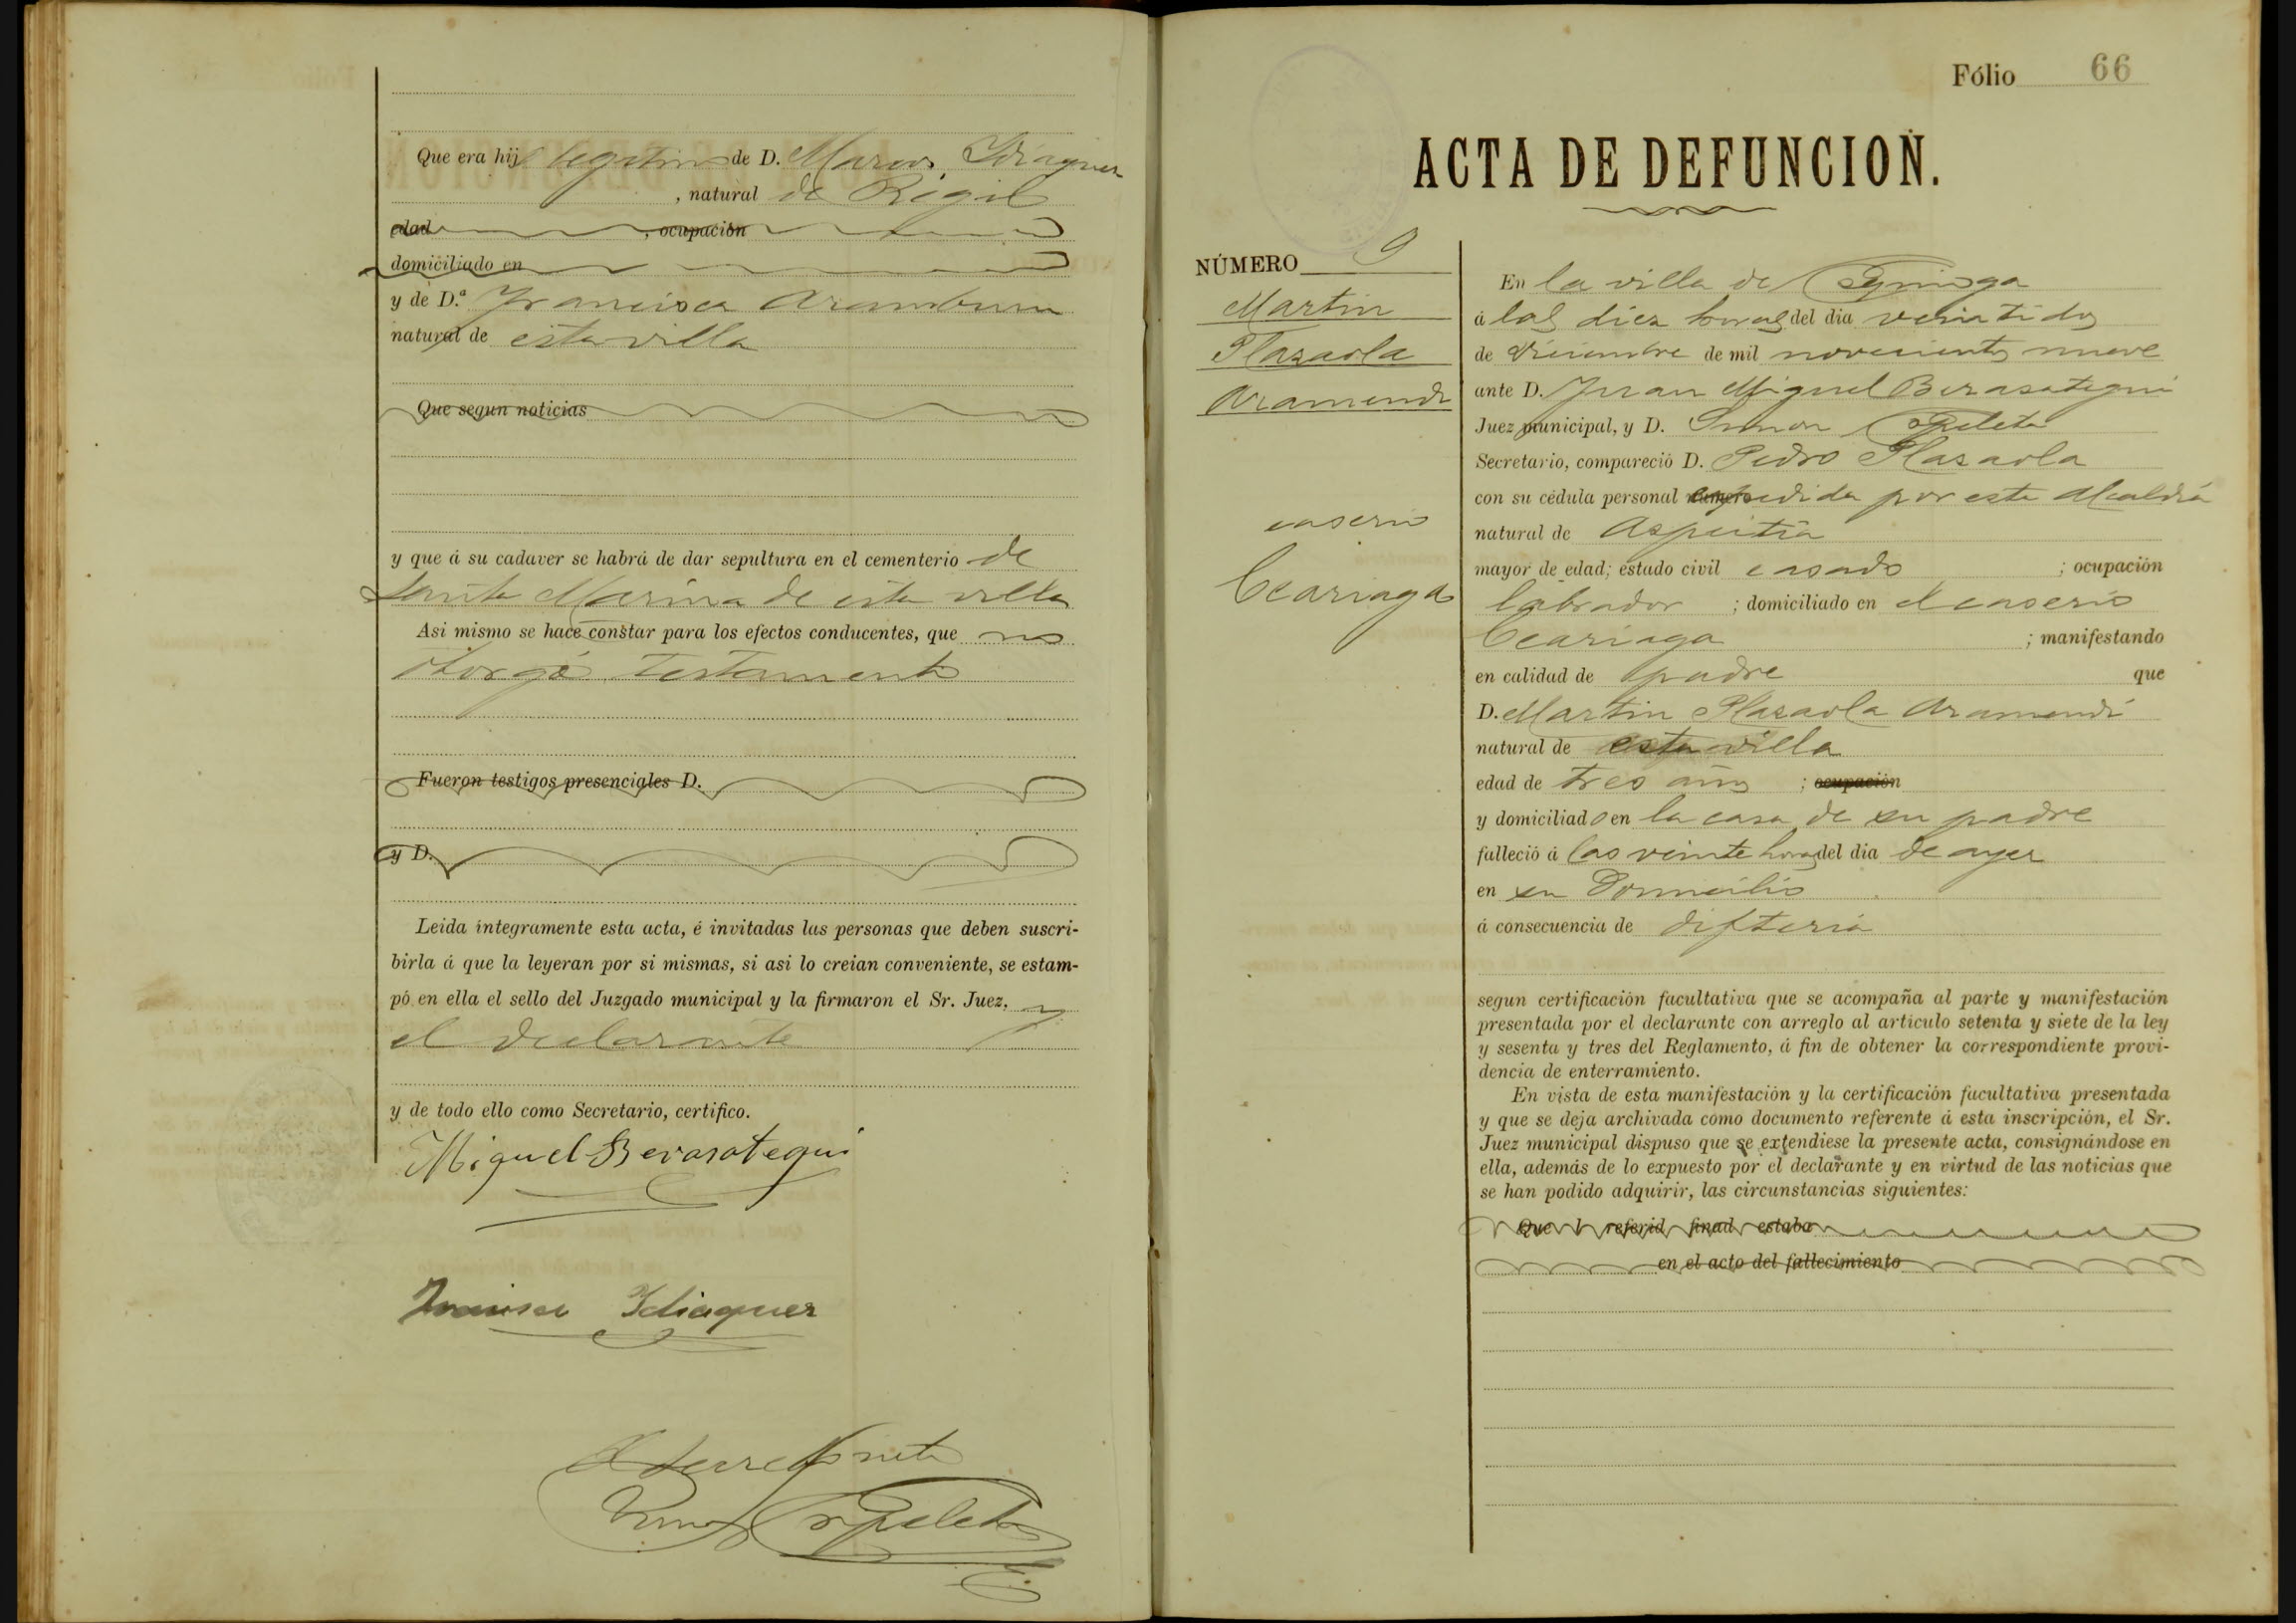 Que era hij legitimo de D. Marcos Idiaquez
, natural de Régil
edad , ocupación
domiciliado en
y de D.ª Francisca Aramburu
natural de esta villa
Que segun noticias
y que á su cadaver se habrá de dar sepultura en el cementerio de
Santa Marina de esta villa
Asi mismo se hace constar para los efectos conducentes, que no
otorgó testamento
Fueron testigos presenciales D.
y D.
Leida íntegramente esta acta, é invitadas las personas que deben suscri-
birla á que la leyeran por si mismas, si asi lo creian conveniente, se estam-
pó en ella el sello del Juzgado municipal y la firmaron el Sr. Juez, y
el declarante
y de todo ello como Secretario, certifico.
Miguel Berasategui
Francisco Idiaquez
Fólio 66
ACTA DE DEFUNCION.
NÚMERO 9
Martin
Plazaola
Aramendi
caserio
En la villa de
á las diez horas del dia veintidos
de Diciembre de mil novecientos nueve
ante D. Juan Miguel Berasategui
Juez municipal, y D. Simon
Secretario, compareció D. Pedro Plazaola
con su cédula personal expedida por esta Alcaldía
natural de Azpeitia
mayor de edad; estado civil casado ; ocupación
labrador ; domiciliado en el caserio
; manifestando
en calidad de padre que
D. Martin Plazaola Aramendi
natural de esta villa
edad de tres años ; ocupación
y domiciliado en la casa de su padre
falleció á las veinte horas del dia de ayer
en su Domicilio
á consecuencia de difteria
segun certificación facultativa que se acompaña al parte y manifestación
presentada por el declarante con arreglo al artículo setenta y siete de la ley
y sesenta y tres del Reglamento, á fin de obtener la correspondiente provi-
dencia de enterramiento.
En vista de esta manifestación y la certificación facultativa presentada
y que se deja archivada como documento referente á esta inscripción, el Sr.
Juez municipal dispuso que se extendiese la presente acta, consignándose en
ella, además de lo expuesto por el declarante y en virtud de las noticias que
se han podido adquirir, las circunstancias siguientes:
Que l referid finad estaba
en el acto del fallecimiento